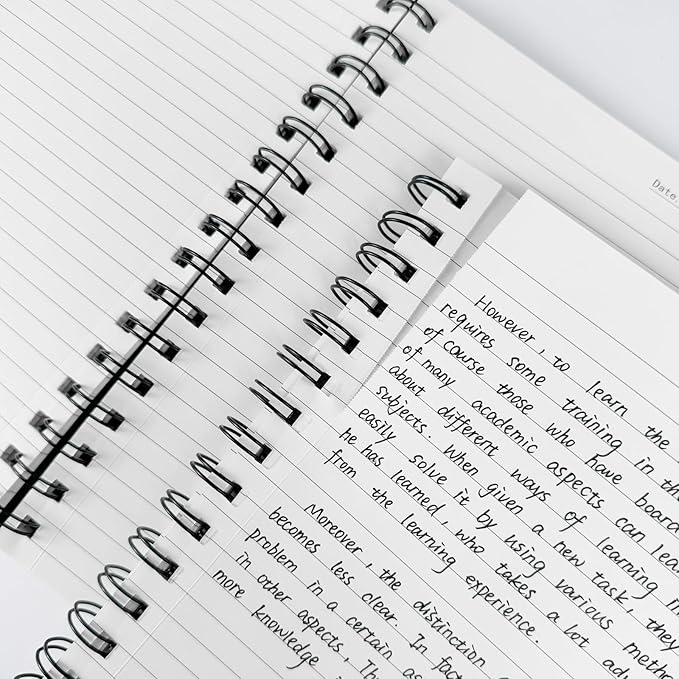 Date.
However, to learn the
requires some training in th
of course those who have board
of many academic aspects can lea
about different ways of learning m
subjects. When given a new task, they
easily solve it by using various meth
he has learned, who takes a lot ad
from the learning experience.
Moreover, the distinction
becomes less clear. In fact
problem in a certain as
in other aspects, Th
more knowledge i